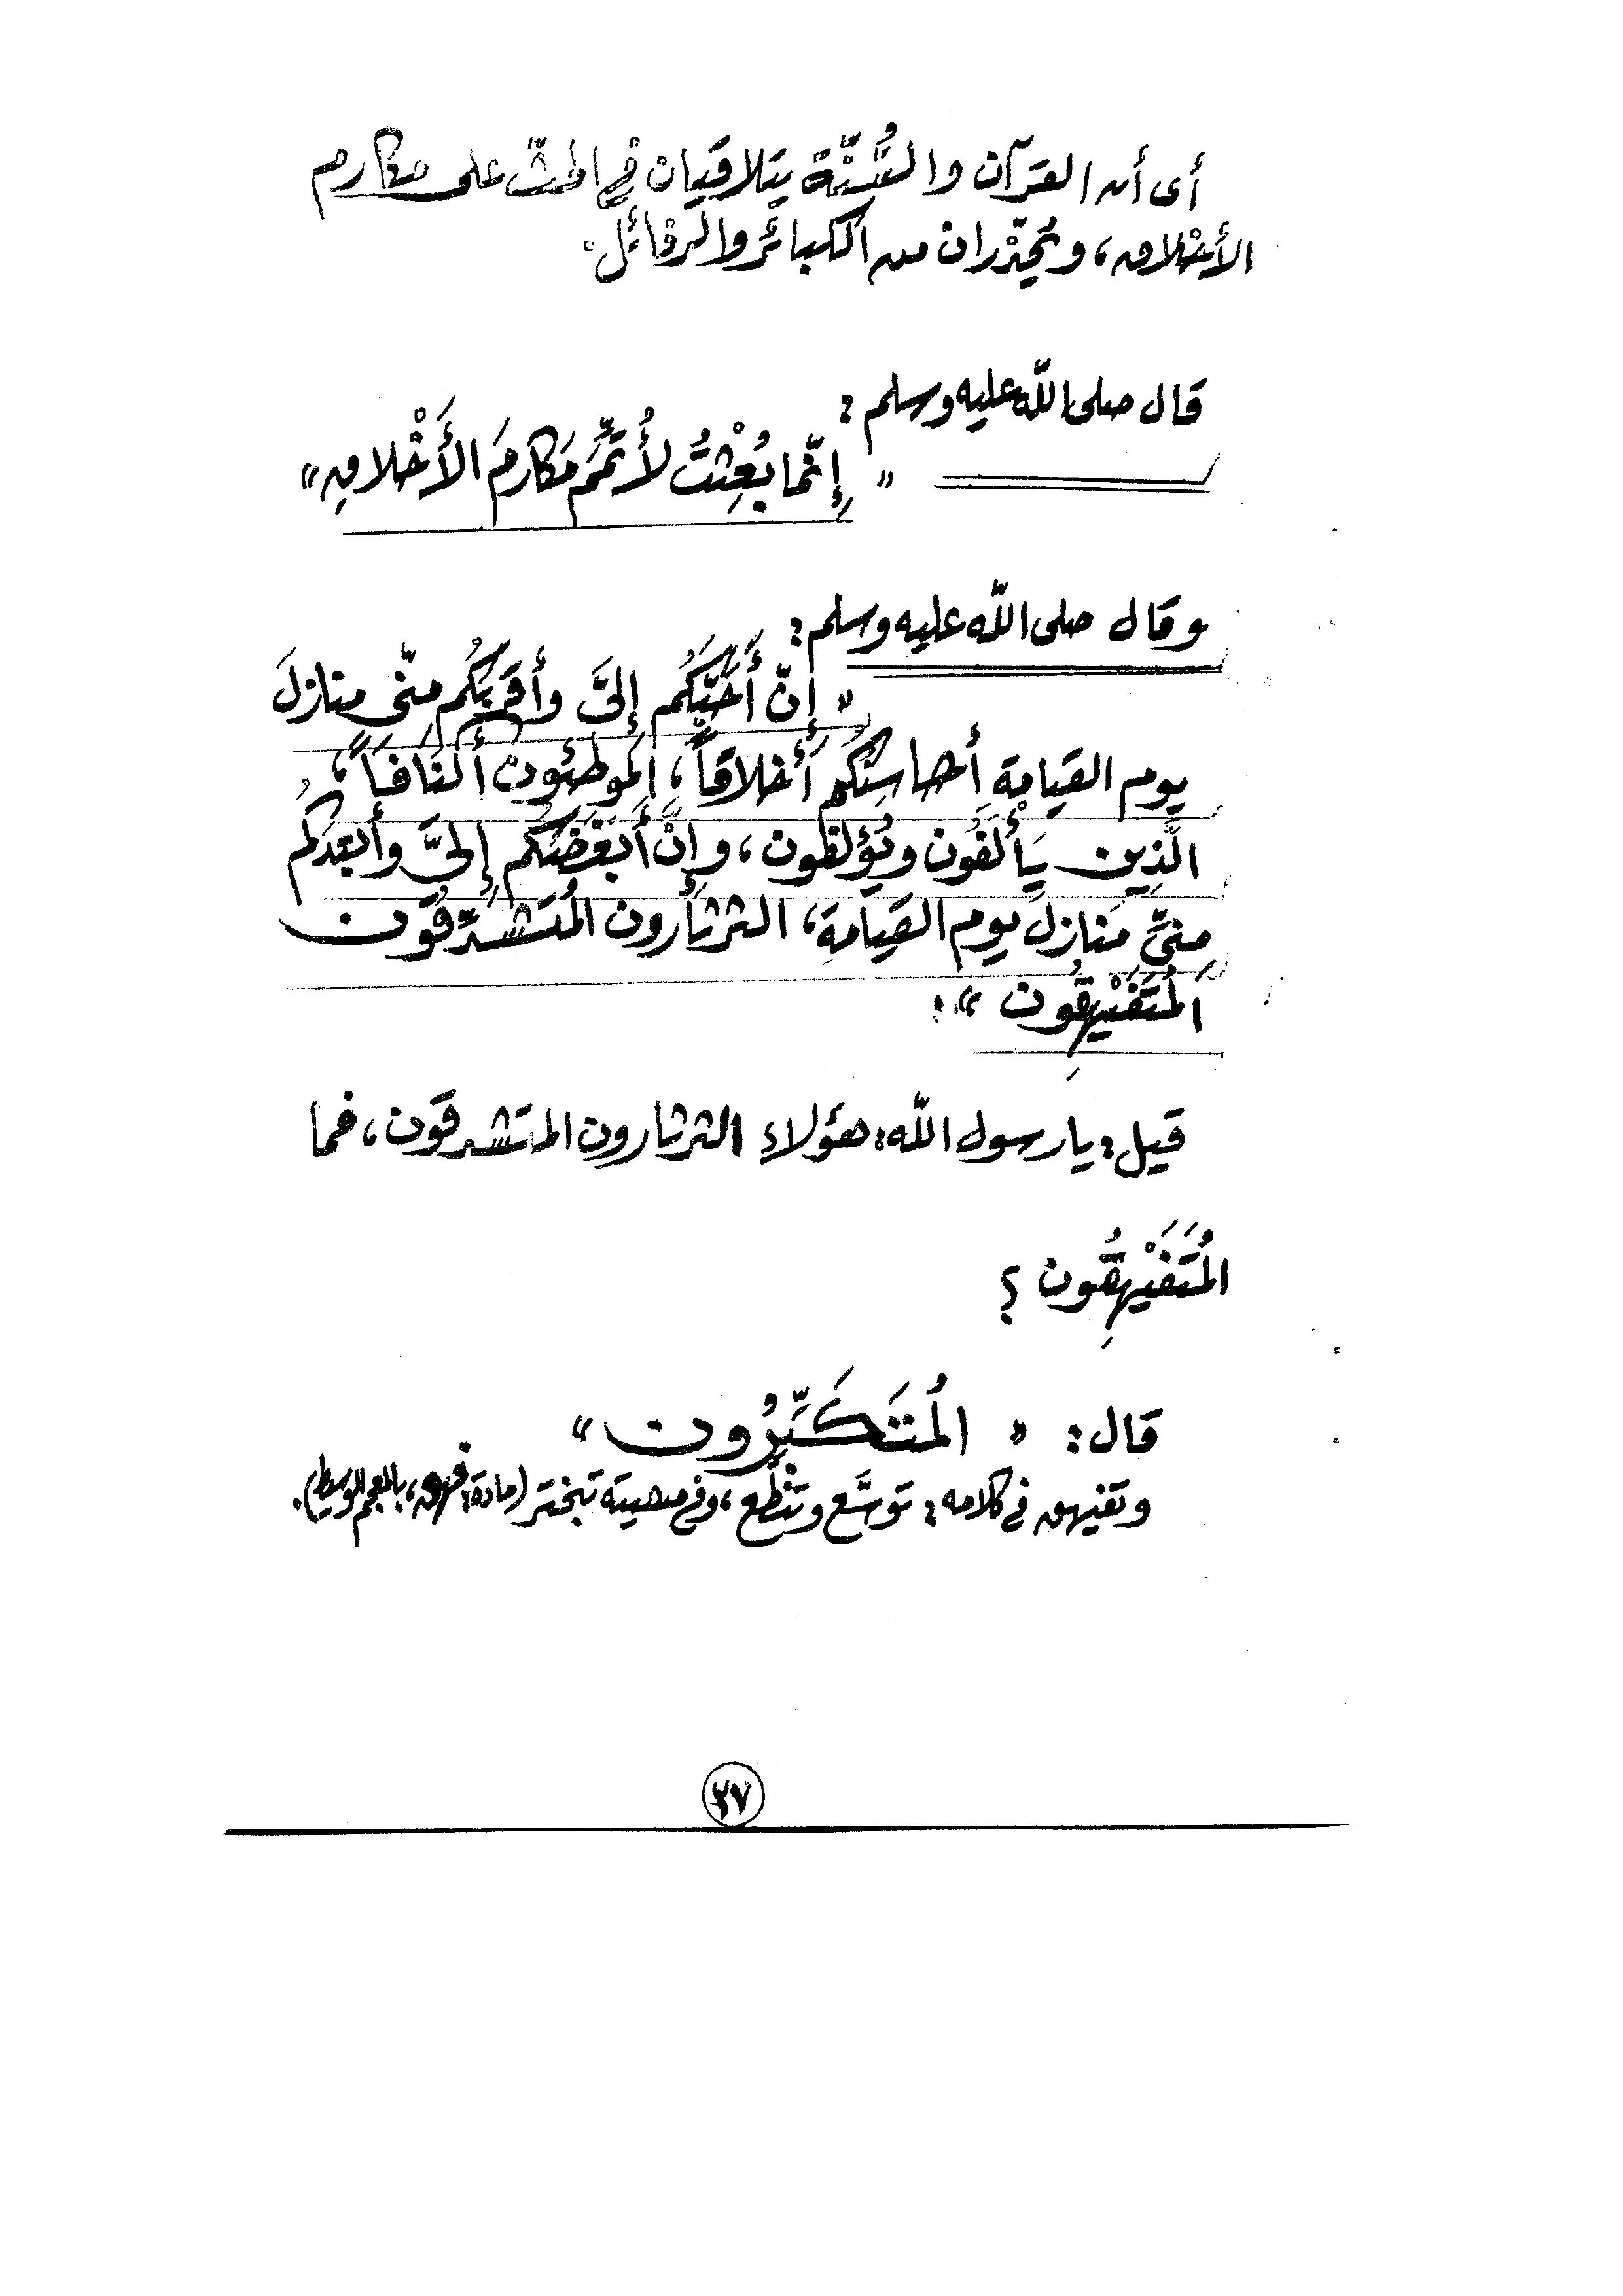 أى أن القرآن والسُّنّة يتلاقيان فى الحثّ على مكارم
الأخلاق، ويُحذّران من الكبائر والرذائل.
قال صلى الله عليه وسلم:
« إِنّما بُعِثْتُ لأُتمِّمَ مَكارمَ الأَخْلاقِ»
وقال صلى الله عليه وسلم:
« إنّ أَحَبَّكُم إلىَّ وأقربَكُم منّى منازلَ
يوم القيامةِ أحاسِنُكُم أخلاقاً، المُوطئون أكنافاً،
الَّذِين يَأْلَفُون ويُؤلفون، وإنَّ أَبغَضَكُم إلىَّ وأبعدَكُم
مِنىِّ مَنازِلَ يوم القيامةِ، الثرثارون المُتَشدِّقُون
المُتَفَيْهِقُون ».
قيل: يارسول الله: هؤلاء الثرثارون المتشدقون، فما
المُتَفَيْهِقُون ؟
قال: « المُتَكَبِّرُون »
وتفيهق فى كلامه: توسَّع وتنطَّع، وفى مشيته تبختر (مادة: فهق، بالمعجم الوسيط).
٣٧